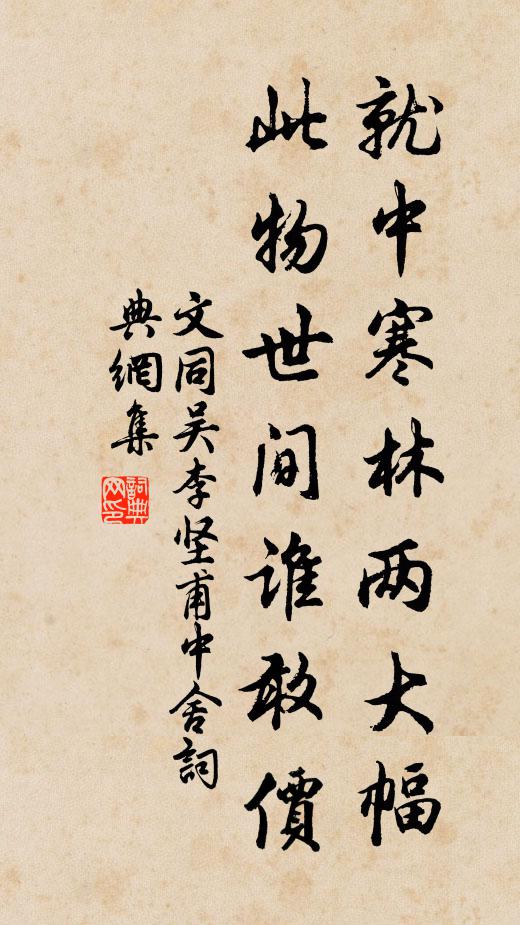 就中寒林两大幅
此物世间谁敢價
文同吴李坚甫中舍詞
典網集
詞典
网印